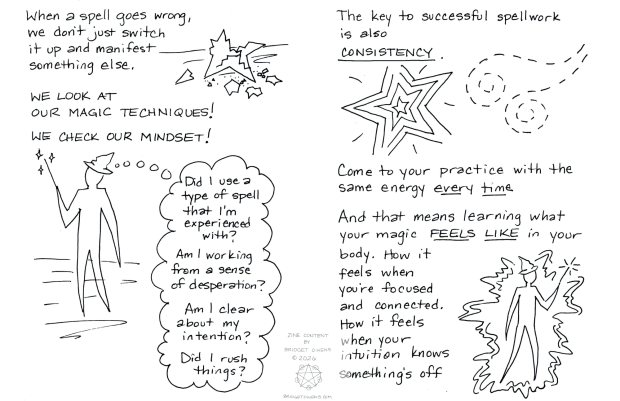 When a spell goes wrong,
we don't just switch
it up and manifest
something else.
WE LOOK AT
OUR MAGIC TECHNIQUES!
WE CHECK OUR MINDSET!
Did I use a
type of spell
that I'm
experienced
with?
Am I working
from a sense
of desperation?
Am I clear
about my
intention?
Did I rush
things?
ZINE CONTENT
BY
BRIDGET OWENS
© 2026
BRIDGETOWENS.COM
The key to successful spellwork
is also
CONSISTENCY.
Come to your practice with the
same energy every time
And that means learning what
your magic FEELS LIKE in your
body. How it
feels when
you're focused
and connected.
How it feels
when your
intuition knows
something's off